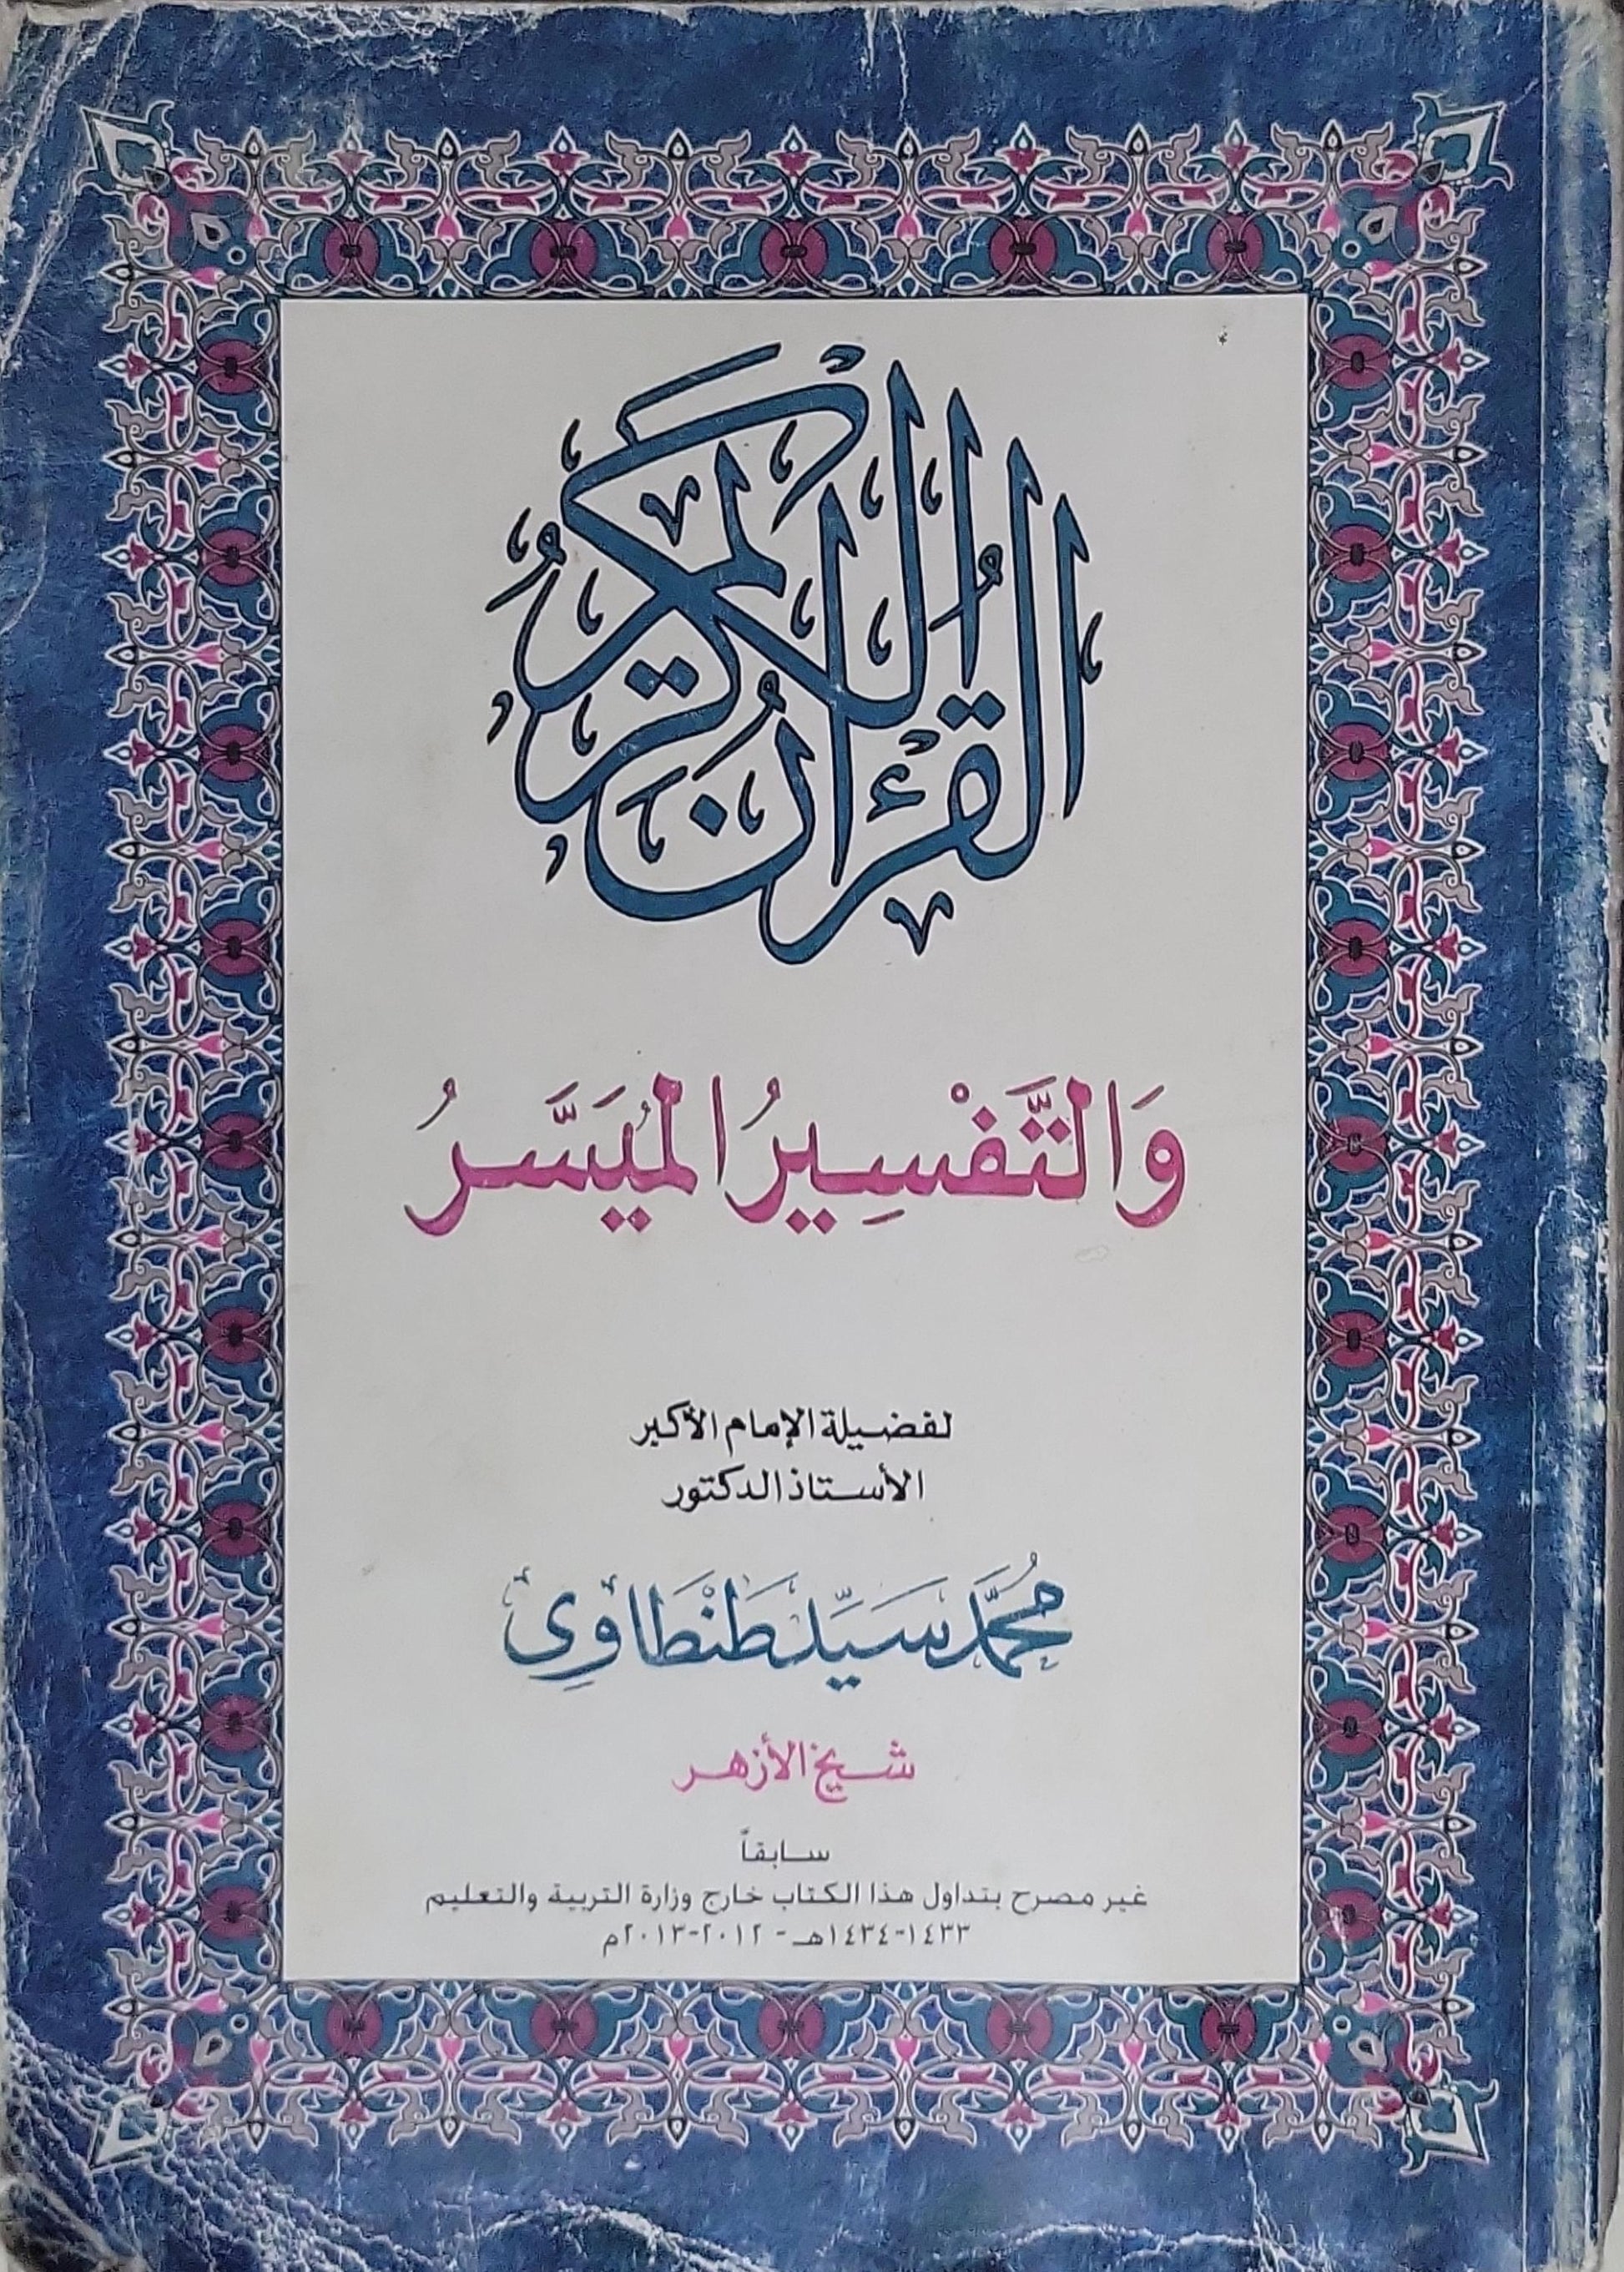 القرآن الكريم
وَالتَّفْسِيرُ الْمُيَسَّرُ
لفضيلة الإمام الأكبر
الأستاذ الدكتور
مُحَمَّد سَيِّد طَنْطَاوِي
شيخ الأزهر
سابقاً
غير مصرح بتداول هذا الكتاب خارج وزارة التربية والتعليم
١٤٣٣-١٤٣٤هـ - ٢٠١٢-٢٠١٣م